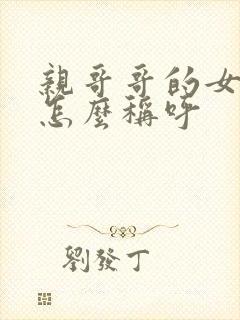 親哥哥的女
怎麼稱呼
劉發丁